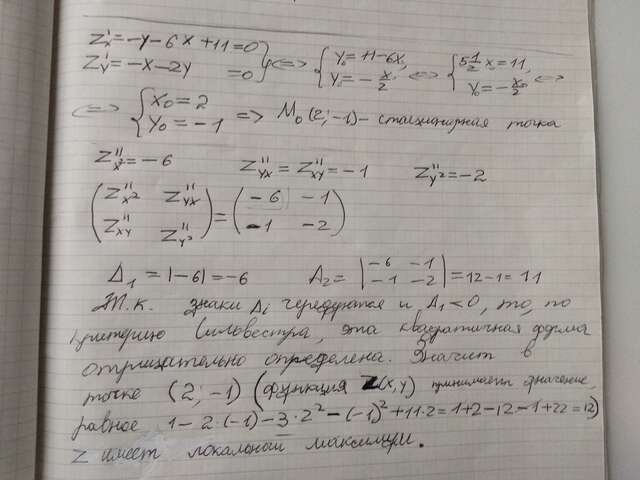 Z'x = -y - 6x + 11 = 0 } <=> { y₀ = 11 - 6x₀, <=> { 5 1/2 x₀ = 11,
Z'y = -x - 2y = 0 } { y₀ = - x/2 { y₀ = - x₀/2 <=>
<=> { x₀ = 2 y₀ = -1 => M₀(2; -1) - стационарная точка
Z''x² = -6 Z''yx = Z''xy = -1 Z''y² = -2
( Z''x² Z''yx ) = ( -6 -1 )
( Z''xy Z''y² ) ( -1 -2 )
Δ₁ = |-6| = -6 Δ₂ = | -6 -1 | | -1 -2 | = 12 - 1 = 11
Т.к. знаки Δi чередуются и Δ₁ < 0, то, по
критерию Сильвестра, эта квадратичная форма
отрицательно определена. Значит в
точке (2; -1) (функция Z(x,y) принимает значение,
равное 1 - 2·(-1) - 3·2² - (-1)² + 11·2 = 1 + 2 - 12 - 1 + 22 = 12)
Z имеет локальный максимум.